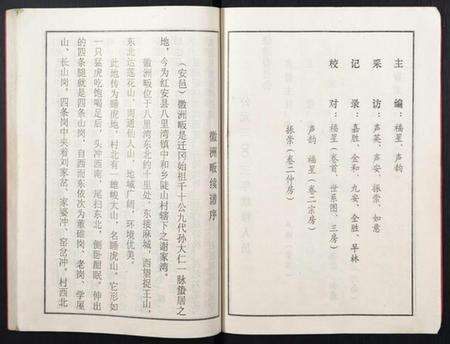 主　编：福星、声钧
采　访：声英、声安、振崇、如意
记　录：嘉胜、金和、九安、全胜、早林
校　对：福星（卷首、世系图、三房）
声钧　福星（卷二宗房）
振崇（卷二仲房）
徽洲畈续谱序
（安邑）徽洲畈是迁冈始祖千十公九代孙大仁一脉蛰居之
地，今为红安县八里湾镇中和乡陡山村辖下之谢家湾。
徽洲畈位于八里湾东北约十里处，东接麻城，西望捉王山，
东北达莲花山，南观仙人山，地域广阔，环境优美。
此地传为睡虎地，村北有一雄峻大山，名睡虎山。它形如
一只猛虎吃饱喝足后，头冲西南，尾扫东北，侧卧酣眠，伸出
的四条腿就是四条岗，自西而东依次为董础岗、老岗、学屋
山、长山岗，四条岗中夹着刘家岔、家婆冲、窑岔冲，村西北